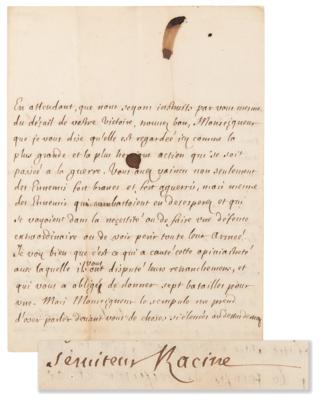 En attendant, que nous soyons instruits par vous mesme
du détail de vostre victoire, trouvez bon, Monseigneur
que je vous dise qu'elle est regardée icy comme la
plus grande et la plus heroique action qui se soit
passée à la guerre. Vous avez vaincu non seulement
des Ennemis fort braves et fort aguerris, mais mesme
des Ennemis qui combattoient en desesperez et qui
se voyoient dans la necessité ou de faire une défense
extraordinaire ou de voir perir toute leur Armée.
Je voy bien que c'est ce qui a causé cette opiniastreté
avec laquelle ils vous ont disputé leurs retranchemens, et
qui vous a obligé de donner sept batailles pour
une. Mais Monseigneur le scrupule me prend
d'oser parler devant vous de choses si élevées au dessus de
serviteur Racine